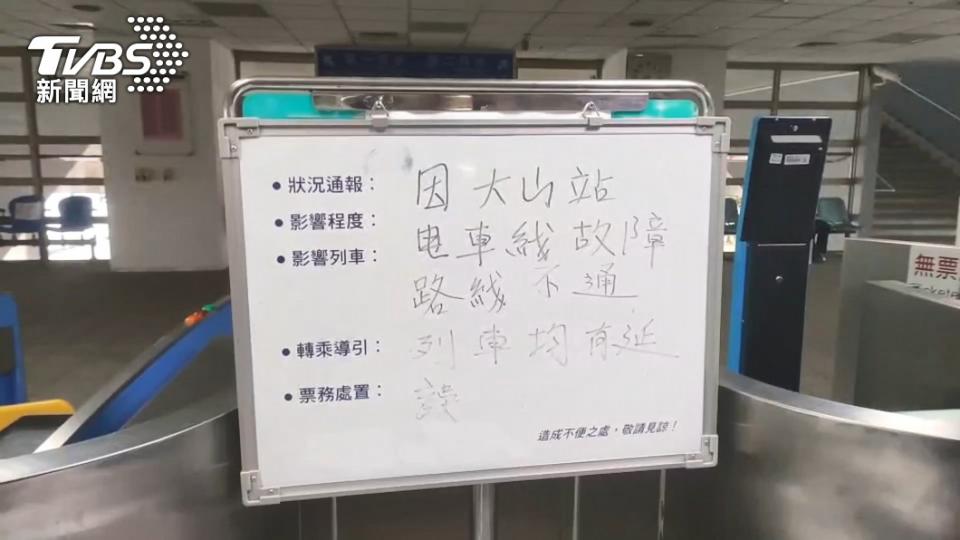 TVBS
新聞網
● 狀況通報：
因大山站
● 影響程度：
电車綫故障
● 影響列車：
路綫不通
● 轉乘導引：
列車均有延
● 票務處置：
誤
造成不便之處，敬請見諒！
無票